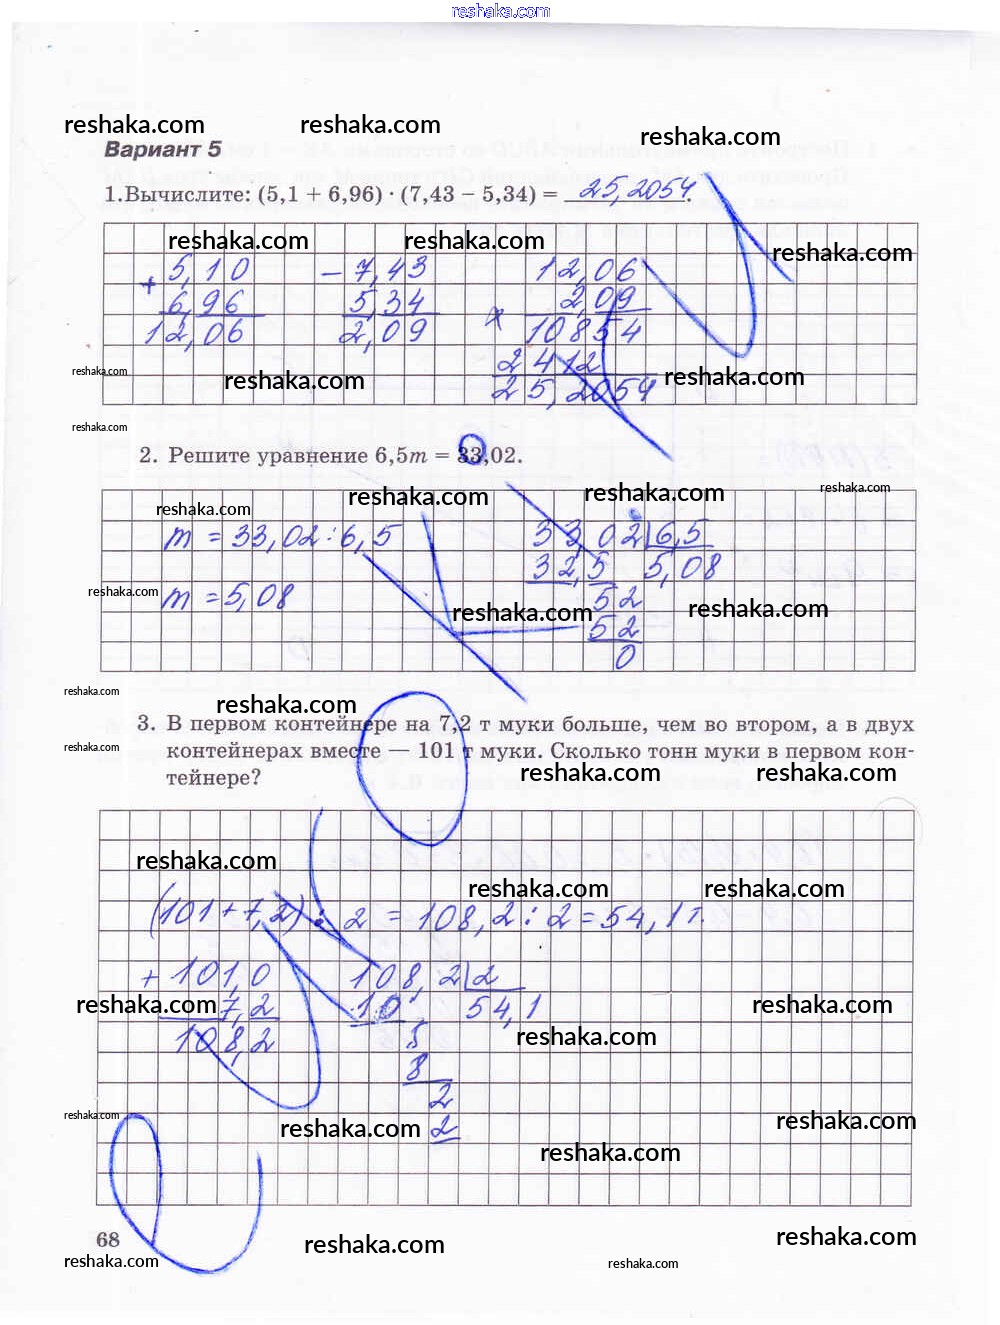 reshaka.com
reshaka.com reshaka.com reshaka.com
Вариант 5
1.Вычислите: (5,1 + 6,96) · (7,43 − 5,34) = 25,2054.
reshaka.com reshaka.com reshaka.com
+ 5,10 − 7,43 12,06
6,96 5,34 x 2,09
12,06 2,09 10854
reshaka.com 2412
reshaka.com reshaka.com
25,2054
reshaka.com
2. Решите уравнение 6,5m = 33,02.
reshaka.com reshaka.com reshaka.com
reshaka.com
m = 33,02 : 6,5 33,02 6,5
32,5 5,08
reshaka.com m = 5,08 52
reshaka.com reshaka.com
52
0
reshaka.com reshaka.com
3. В первом контейнере на 7,2 т муки больше, чем во втором, а в двух
reshaka.com контейнерах вместе — 101 т муки. Сколько тонн муки в первом кон-
тейнере? reshaka.com reshaka.com
reshaka.com
reshaka.com reshaka.com
(101 + 7,2) : 2 = 108,2 : 2 = 54,1 т.
+ 101,0 108,2 2
7,2 10 54,1
reshaka.com reshaka.com
108,2 8
reshaka.com
8
2
reshaka.com reshaka.com
reshaka.com 2
reshaka.com
68
reshaka.com reshaka.com reshaka.com reshaka.com